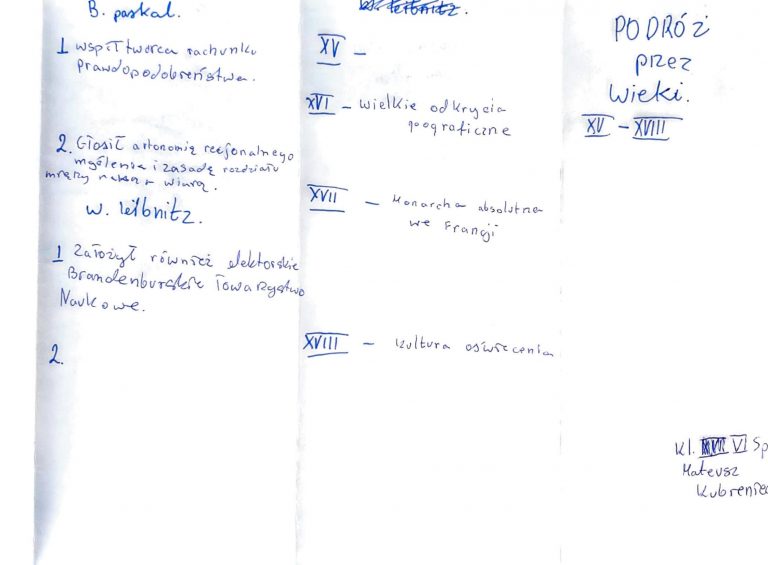 B. paskal.
1 współtworca rachunku
prawdopodobeństwa.
2. Głosił autonomię racjonalnego
myślenia i zasadę rozdziału
między nauką a wiarą.
W. leibnitz.
1 Założył również elektorskie
Brandenburskie Towarzystwo
Naukowe.
2.
leibnitz.
XV –
XVI – wielkie odkrycia
geograficzne
XVII – Monarcha absolutna
we Francji
XVIII – kultura oświecenia
PODRÓŻ
przez
wieki.
XV – XVIII
Kl. VI Sp
Mateusz